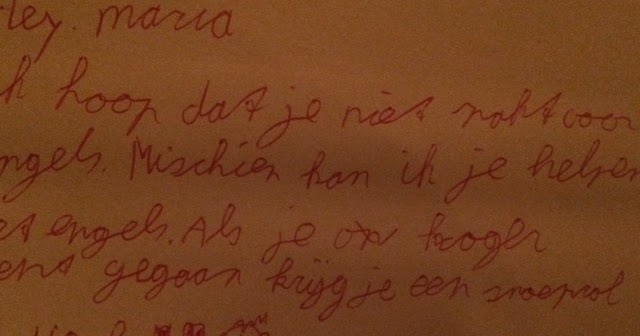 Hey. maria
ik hoop dat je niet zakt voor
engels. Mischien kan ik je helpen
met engels. Als je op hoger
bent gegaan krijg je een snoeprol